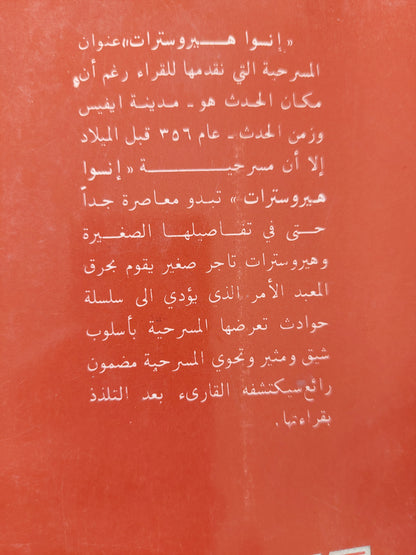 « إنسوا هـــيروسترات»عنوان
المسرحية التي نقدمها للقراء رغم أن
مكان الحدث هو ـ مدينة ايفيس
وزمن الحدث ـ عام ٣٥٦ قبل الميلاد
إلا أن مسرحيـــــــــة « إنسوا
هيروسترات » تبدو معاصرة جداً
حتـــى في تفـاصيلهـا الصغيرة
وهيروسترات تاجر صغير يقوم بحرق
المعبد الأمر الذي يؤدي الى سلسلة
حوادث تعرضها المسرحية بأسلوب
شيق ومثير وتحوي المسرحية مضمون
رائع سيكتشفه القارىء بعد التلذذ
بقراءتها .